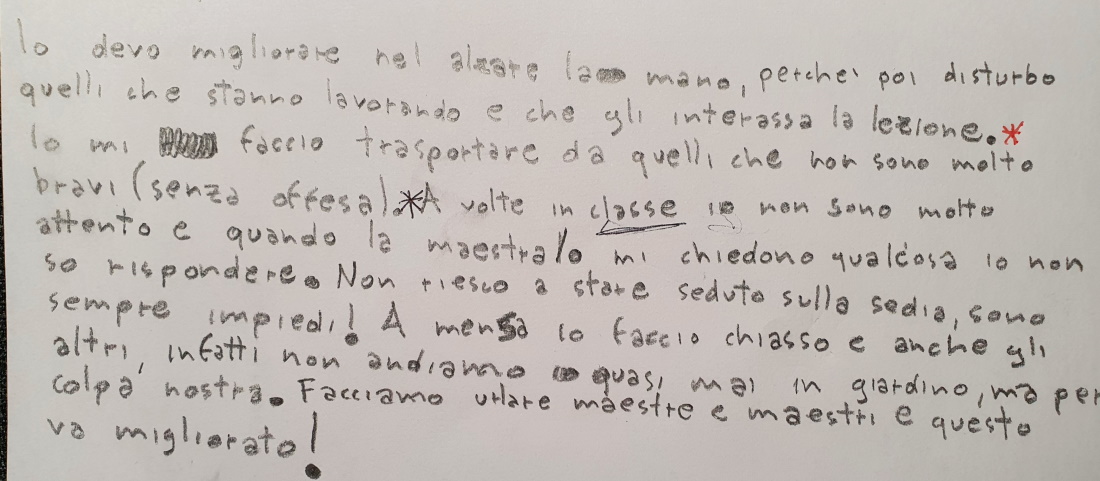 Io devo migliorare nel alzare la mano, perche' poi disturbo
quelli che stanno lavorando e che gli interassa la lezione.*
Io mi faccio trasportare da quelli che non sono molto
bravi (senza offesa).*A volte in classe io non sono molto
attento e quando la maestra/o mi chiedono qualcosa io non
so rispondere. Non riesco a stare seduto sulla sedia, sono
sempre impiedi! A mensa io faccio chiasso e anche gli
altri, infatti non andiamo quasi mai in giardino, ma per
colpa nostra. Facciamo urlare maestre e maestri e questo
va migliorato!